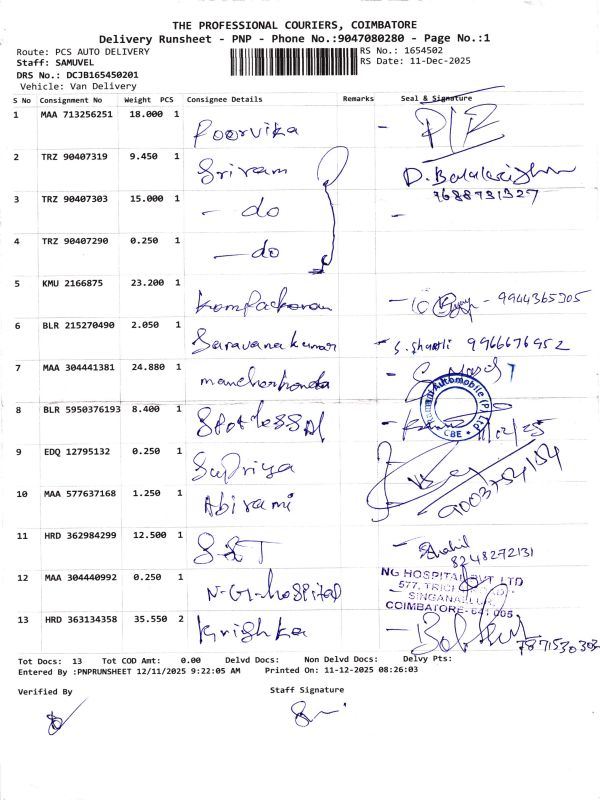 THE PROFESSIONAL COURIERS, COIMBATORE
Delivery Runsheet - PNP - Phone No.:9047080280 - Page No.:1
Route: PCS AUTO DELIVERY
RS No.: 1654502
Staff: SAMUVEL
RS Date: 11-Dec-2025
DRS No.: DCJB165450201
Vehicle: Van Delivery
S No Consignment No Weight PCS Consignee Details Remarks Seal & Signature
1 MAA 713256251 18.000 1 Poorvika -
2 TRZ 90407319 9.450 1 Sriram D. Balakrishnan
9688731327
3 TRZ 90407303 15.000 1 - do -
4 TRZ 90407290 0.250 1 - do
5 KMU 2166875 23.200 1 - 9944365305
6 BLR 215270490 2.050 1 Saravanakumar - S. 9966676952
7 MAA 304441381 24.880 1 -
Automobile (P) Ltd
CBE
8 BLR 5950376193 8.400 1 -
9 EDQ 12795132 0.250 1 Supriya
9003754154
10 MAA 577637168 1.250 1 Abirami
11 HRD 362984299 12.500 1 -
8248272131
12 MAA 304440992 0.250 1 N-G-Hospital
NG HOSPITAL PVT LTD
577, TRICHY ROAD
COIMBATORE-641 005.
13 HRD 363134358 35.550 2 Krishka -
Tot Docs: 13 Tot COD Amt: 0.00 Delvd Docs: Non Delvd Docs: Delvy Pts:
Entered By :PNPRUNSHEET 12/11/2025 9:22:05 AM Printed On: 11-12-2025 08:26:03
Verified By Staff Signature